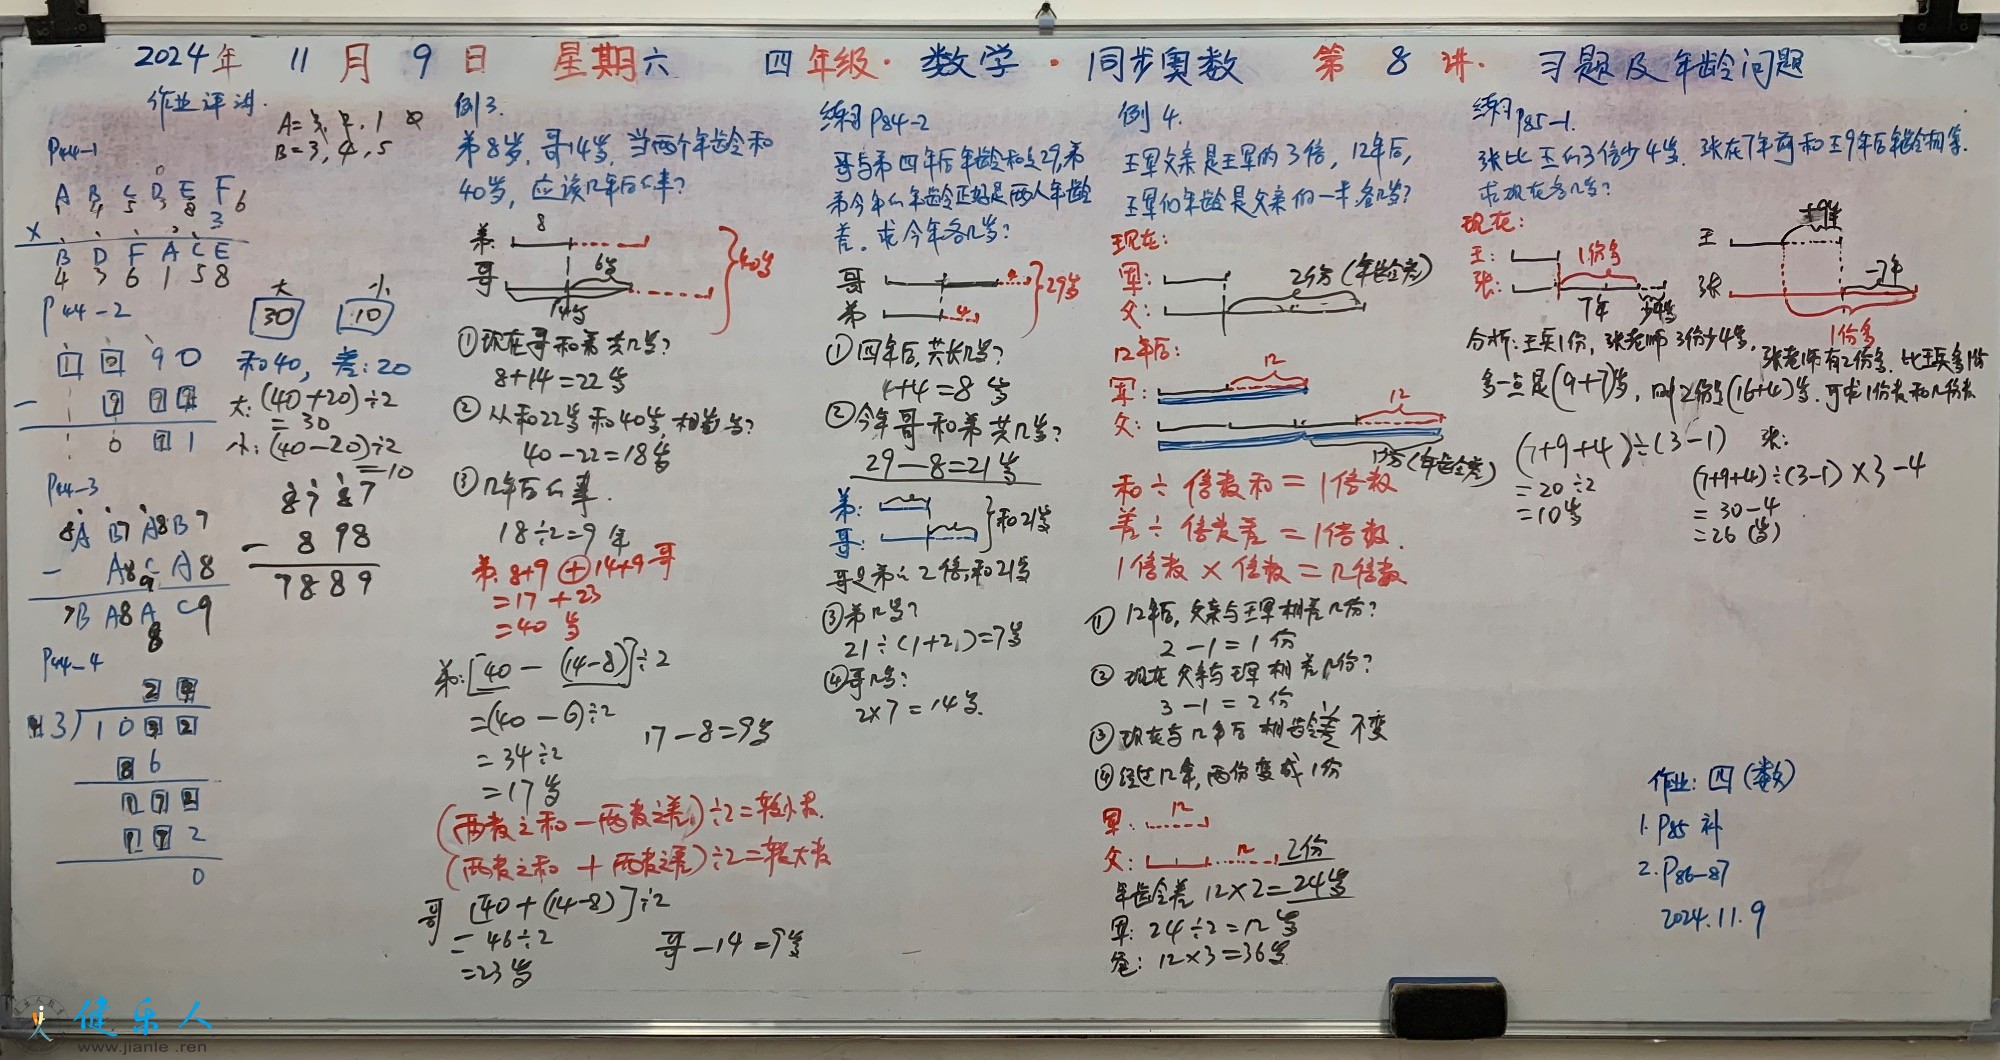 2024年 11月9日 星期六 四年级·数学·同步奥数 第8讲· 习题及年龄问题
作业评讲.
P44-1
A B C D E F
× 3
B D F A C E
4 3 6 1 5 8
P44-2
大 小
30 10
和40, 差:20
大:(40+20)÷2
=30
小:(40-20)÷2
=10
P44-3
8787
- 898
7889
P44-4
例3.
弟8岁, 哥14岁, 当两个年龄和
40岁, 应该几年后的事?
弟: 8
哥 6岁
14岁
40岁
①现在哥和弟共几岁?
8+14=22岁
②从和22岁和40岁, 相差岁?
40-22=18岁
③几年后的事.
18÷2=9年
弟: 8+9 + 14+9 哥
=17+23
=40岁
弟:[40-(14-8)]÷2
=(40-6)÷2
=34÷2
=17岁
17-8=9岁
(两数之和-两数之差)÷2=较小数.
(两数之和+两数之差)÷2=较大数
哥 [40+(14-8)]÷2
=46÷2
=23岁
哥-14=9岁
练习P84-2
哥与弟四年后年龄和是29,弟
弟今年的年龄正好是两人年龄
差. 求今年各几岁?
哥
弟 4
29岁
①四年后,共长几岁?
4+4=8岁
②今年哥和弟共几岁?
29-8=21岁
弟:
哥:
和21岁
哥是弟的2倍,和21岁
③弟几岁?
21÷(1+2)=7岁
④哥几岁?
2×7=14岁.
例4.
王军父亲是王军的3倍, 12年后,
王军的年龄是父亲的一半, 各几岁?
现在:
军:
父:
2份(年龄差)
12年后:
军: 12
父: 12
1份(年龄差)
和÷倍数和=1倍数
差÷倍数差=1倍数.
1倍数×倍数=几倍数
① 12年后, 父亲与王军相差几份?
2-1=1份
② 现在父亲与王军相差几份?
3-1=2份
③现在与12年后相龄差不变
④经过12年,两份变成1份
军: 12
父: 12 2份
年龄差 12×2=24岁
军: 24÷2=12岁
爸: 12×3=36岁
练习P85-1.
张比王的3倍少4岁. 张在7年前和王9年后年龄相等.
求现在各几岁?
现在:
王: 1份多
张: 7年 少4岁
王 +9年
张 -7年
1份多
分析:王兵1份, 张老师3份少4岁,
张老师有2份多. 比王兵多1份
多一点是(9+7)岁, 则2份是(16+4)岁. 可求1份数和几份数
(7+9+4)÷(3-1)
=20÷2
=10岁
张:
(7+9+4)÷(3-1)×3-4
=30-4
=26(岁)
作业: 四(数)
1. P85 补
2. P86-87
2024.11.9
健乐人
www.jianle.ren